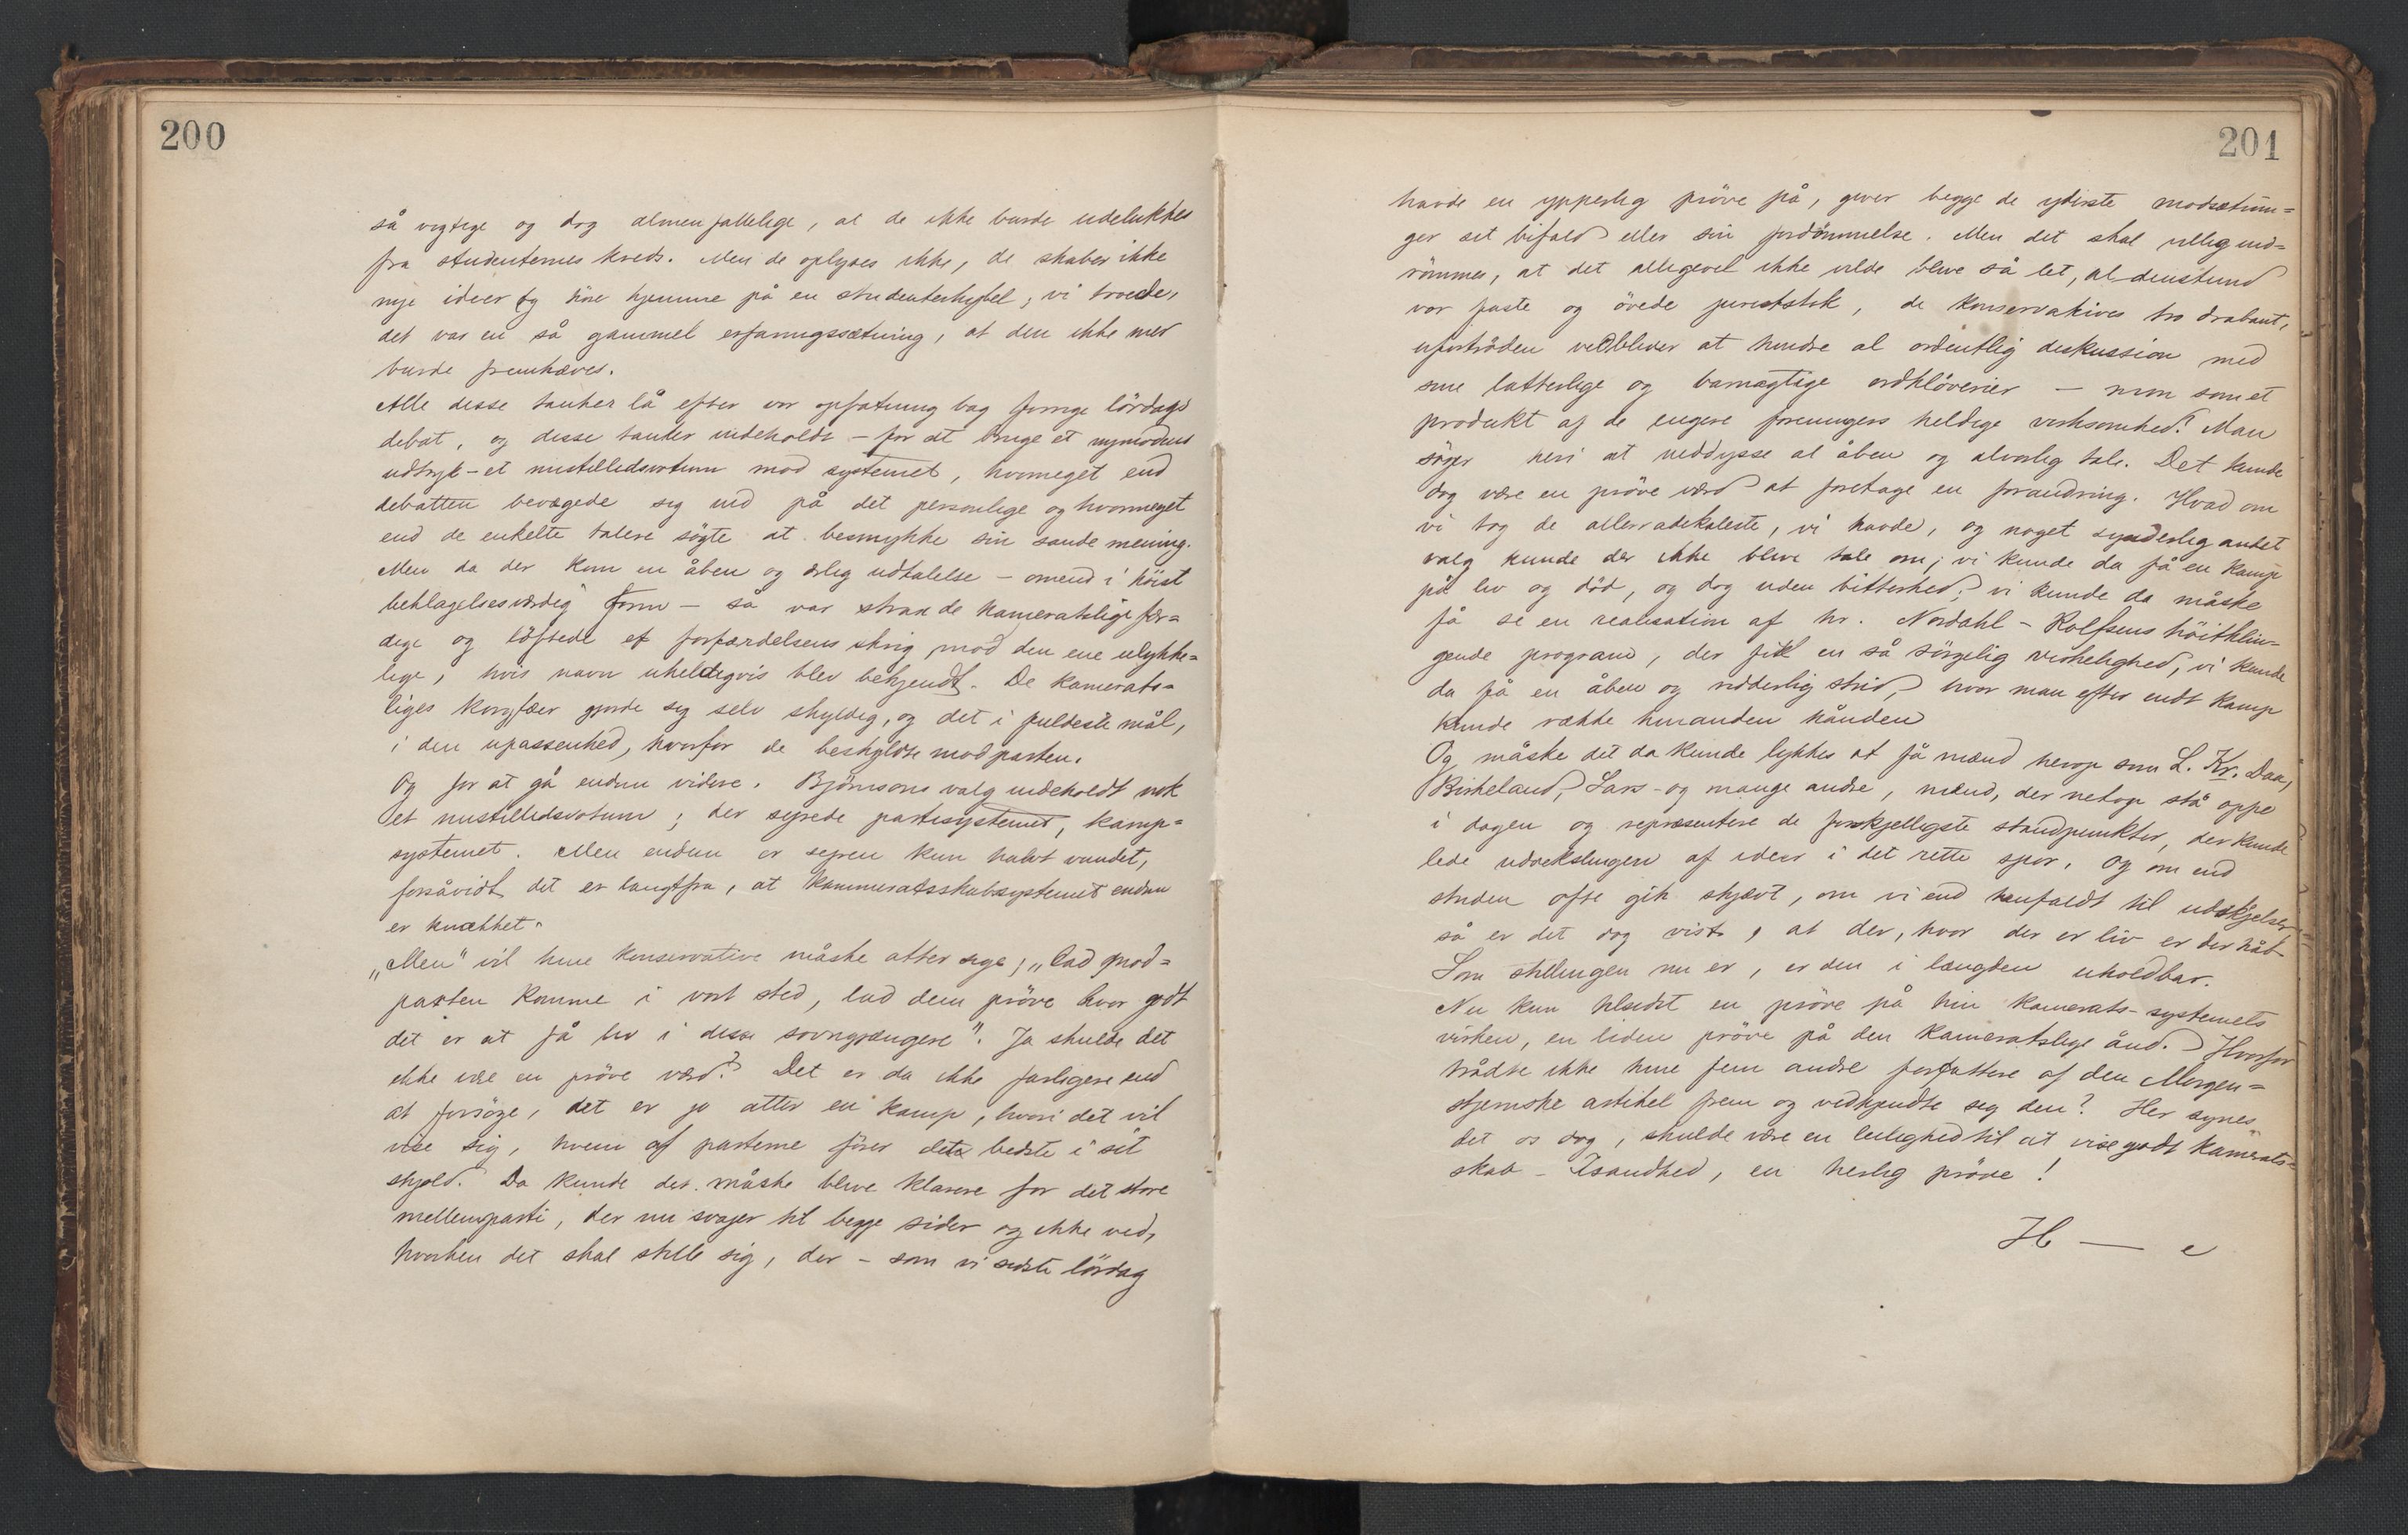 200
så vigtige og dog almenfattelige, at de ikke burde udelukkes
fra studenternes kreds. Men de oplyses ikke, de skaber ikke
nye ideer og höre hjemme på en studenterhybel; vi troede,
det var en så gammel erfaringssætning, at den ikke mer
burde fremhæves.
Alle disse tanker lå efter vor opfatning bag forrige lördags
debat, og disse tanker indeholdt – for at bruge et nymodens
udtryk – et mistillidsvotum mod systemet, hvormeget end
debatten bevægede sig ind på det personlige og hvormeget
end de enkelte talere sögte at besmykke sin sande mening.
Men da der kom en åben og ærlig udtalelse – omend i höist
beklagelsesværdig form – så var strax de kameratslige fær=
dige og löftede et forfærdelsens skrig mod den ene ulykke=
lige, hvis navn uheldigvis blev bekjendt. De kamerats=
liges koryfæer gjorde sig selv skyldig, og det i fuldeste mål,
i den upassenhed, hvorfor de beskyldte modparten.
Og for at gå endnu videre. Björnsons valg indeholdt nok
et mistillidsvotum; der seirede partisystemet, kamp=
systemet. Men endnu er seiren kun halvt vundet,
forsåvidt det er langtfra, at kammeratsskabsystemet endnu
er knækket.
„Men" vil hine konservative måske atter sige, „lad mod=
parten komme i vort sted, lad dem pröve hvor godt
det er at få liv i disse sövngjængere". Ja skulde det
ikke være en pröve værd? Det er da ikke farligere end
at forsöge, det er jo atter en kamp, hvori det vil
vise sig, hvem af parterne förer det bedste i sit
skjold. Da kunde det måske blive klarere for det store
mellemparti, der nu svajer til begge sider og ikke ved,
hvorhen det skal stille sig, der – som vi sidste lördag
201
havde en ypperlig pröve på, giver begge de yderste modsætnin=
ger sit bifald eller sin fordömmelse. Men det skal villig ind=
römmes, at det alligevel ikke vilde blive så let, aldenstund
vor faste og övede juriststok, de konservatives tro drabant,
ufortröden vedbliver at hindre al ordentlig diskussion med
sine latterlige og barnagtige ordklöverier – mon som et
produkt af de engere foreningers heldige virksomhed? Man
söger heri at neddysse al åben og alvorlig tale. Det kunde
dog være en pröve værd at foretage en forandring. Hvad om
vi tog de allerradikaleste, vi havde, og noget synderlig andet
valg kunde der ikke blive tale om; vi kunde da få en kamp
på liv og död, og dog uden bitterhed; vi kunde da måske
få se en realisation af hr. Nordahl-Rolfsens höitklin-
gende program, der fik en så sörgelig virkelighed, vi kunde
da få en åben og ridderlig strid, hvor man efter endt kamp
kunde række hinanden hånden
Og måske det da kunde lykkes at få mænd herop som L. Kr. Daa,
Birkeland, Sars – og mange andre, mænd, der netop stå oppe
i dagen og repræsentere de forskjelligste standpunkter, der kunde
lede udvekslingen af ideer i det rette spor. Og om end
striden ofte gik skjævt, om vi end henfaldt til udskejelser
så er det dog vist, at der, hvor der er liv er der håb
Som stillingen nu er, er den i længden uholdbar.
Nu kun tilsidst en pröve på hin kamerats-systemets
virken, en liden pröve på den kameratslige ånd. Hvorfor
trådte ikke hine fem andre forfattere af den Morgen=
stjernske artikel frem og vedkjendte seg den? Her synes
det os dog, skulde være en leilighed til at vise godt kamerats=
skab – Isandhed, en herlig pröve!
H — e